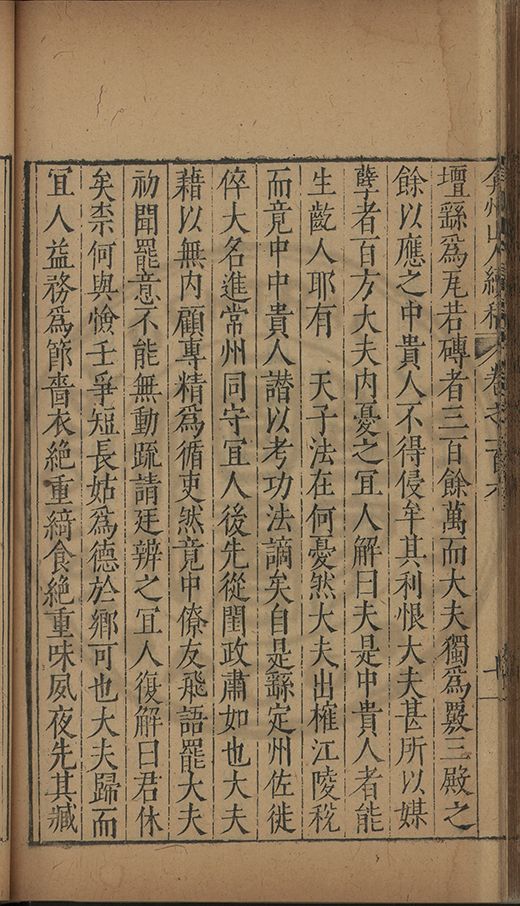 弇州山人續稿 卷之一百六
壇繇爲瓦若磚者三百餘萬而大夫獨爲覈三殿之
餘以應之中貴人不得侵牟其利恨大夫甚所以媒
孽者百方大夫内憂之宜人解曰夫是中貴人者能
生齮人耶有 天子法在何憂然大夫出榷江陵稅
而竟中中貴人譛以考功法謫矣自是繇定州佐徙
倅大名進常州同守宜人後先從閨政肅如也大夫
藉以無内顧專精爲循吏然竟中僚友飛語罷大夫
初聞罷意不能無動疏請廷辨之宜人復解曰君休
矣柰何與憸壬爭短長姑爲德於鄉可也大夫歸而
宜人益務爲節嗇衣絶重綺食絶重味夙夜先其臧